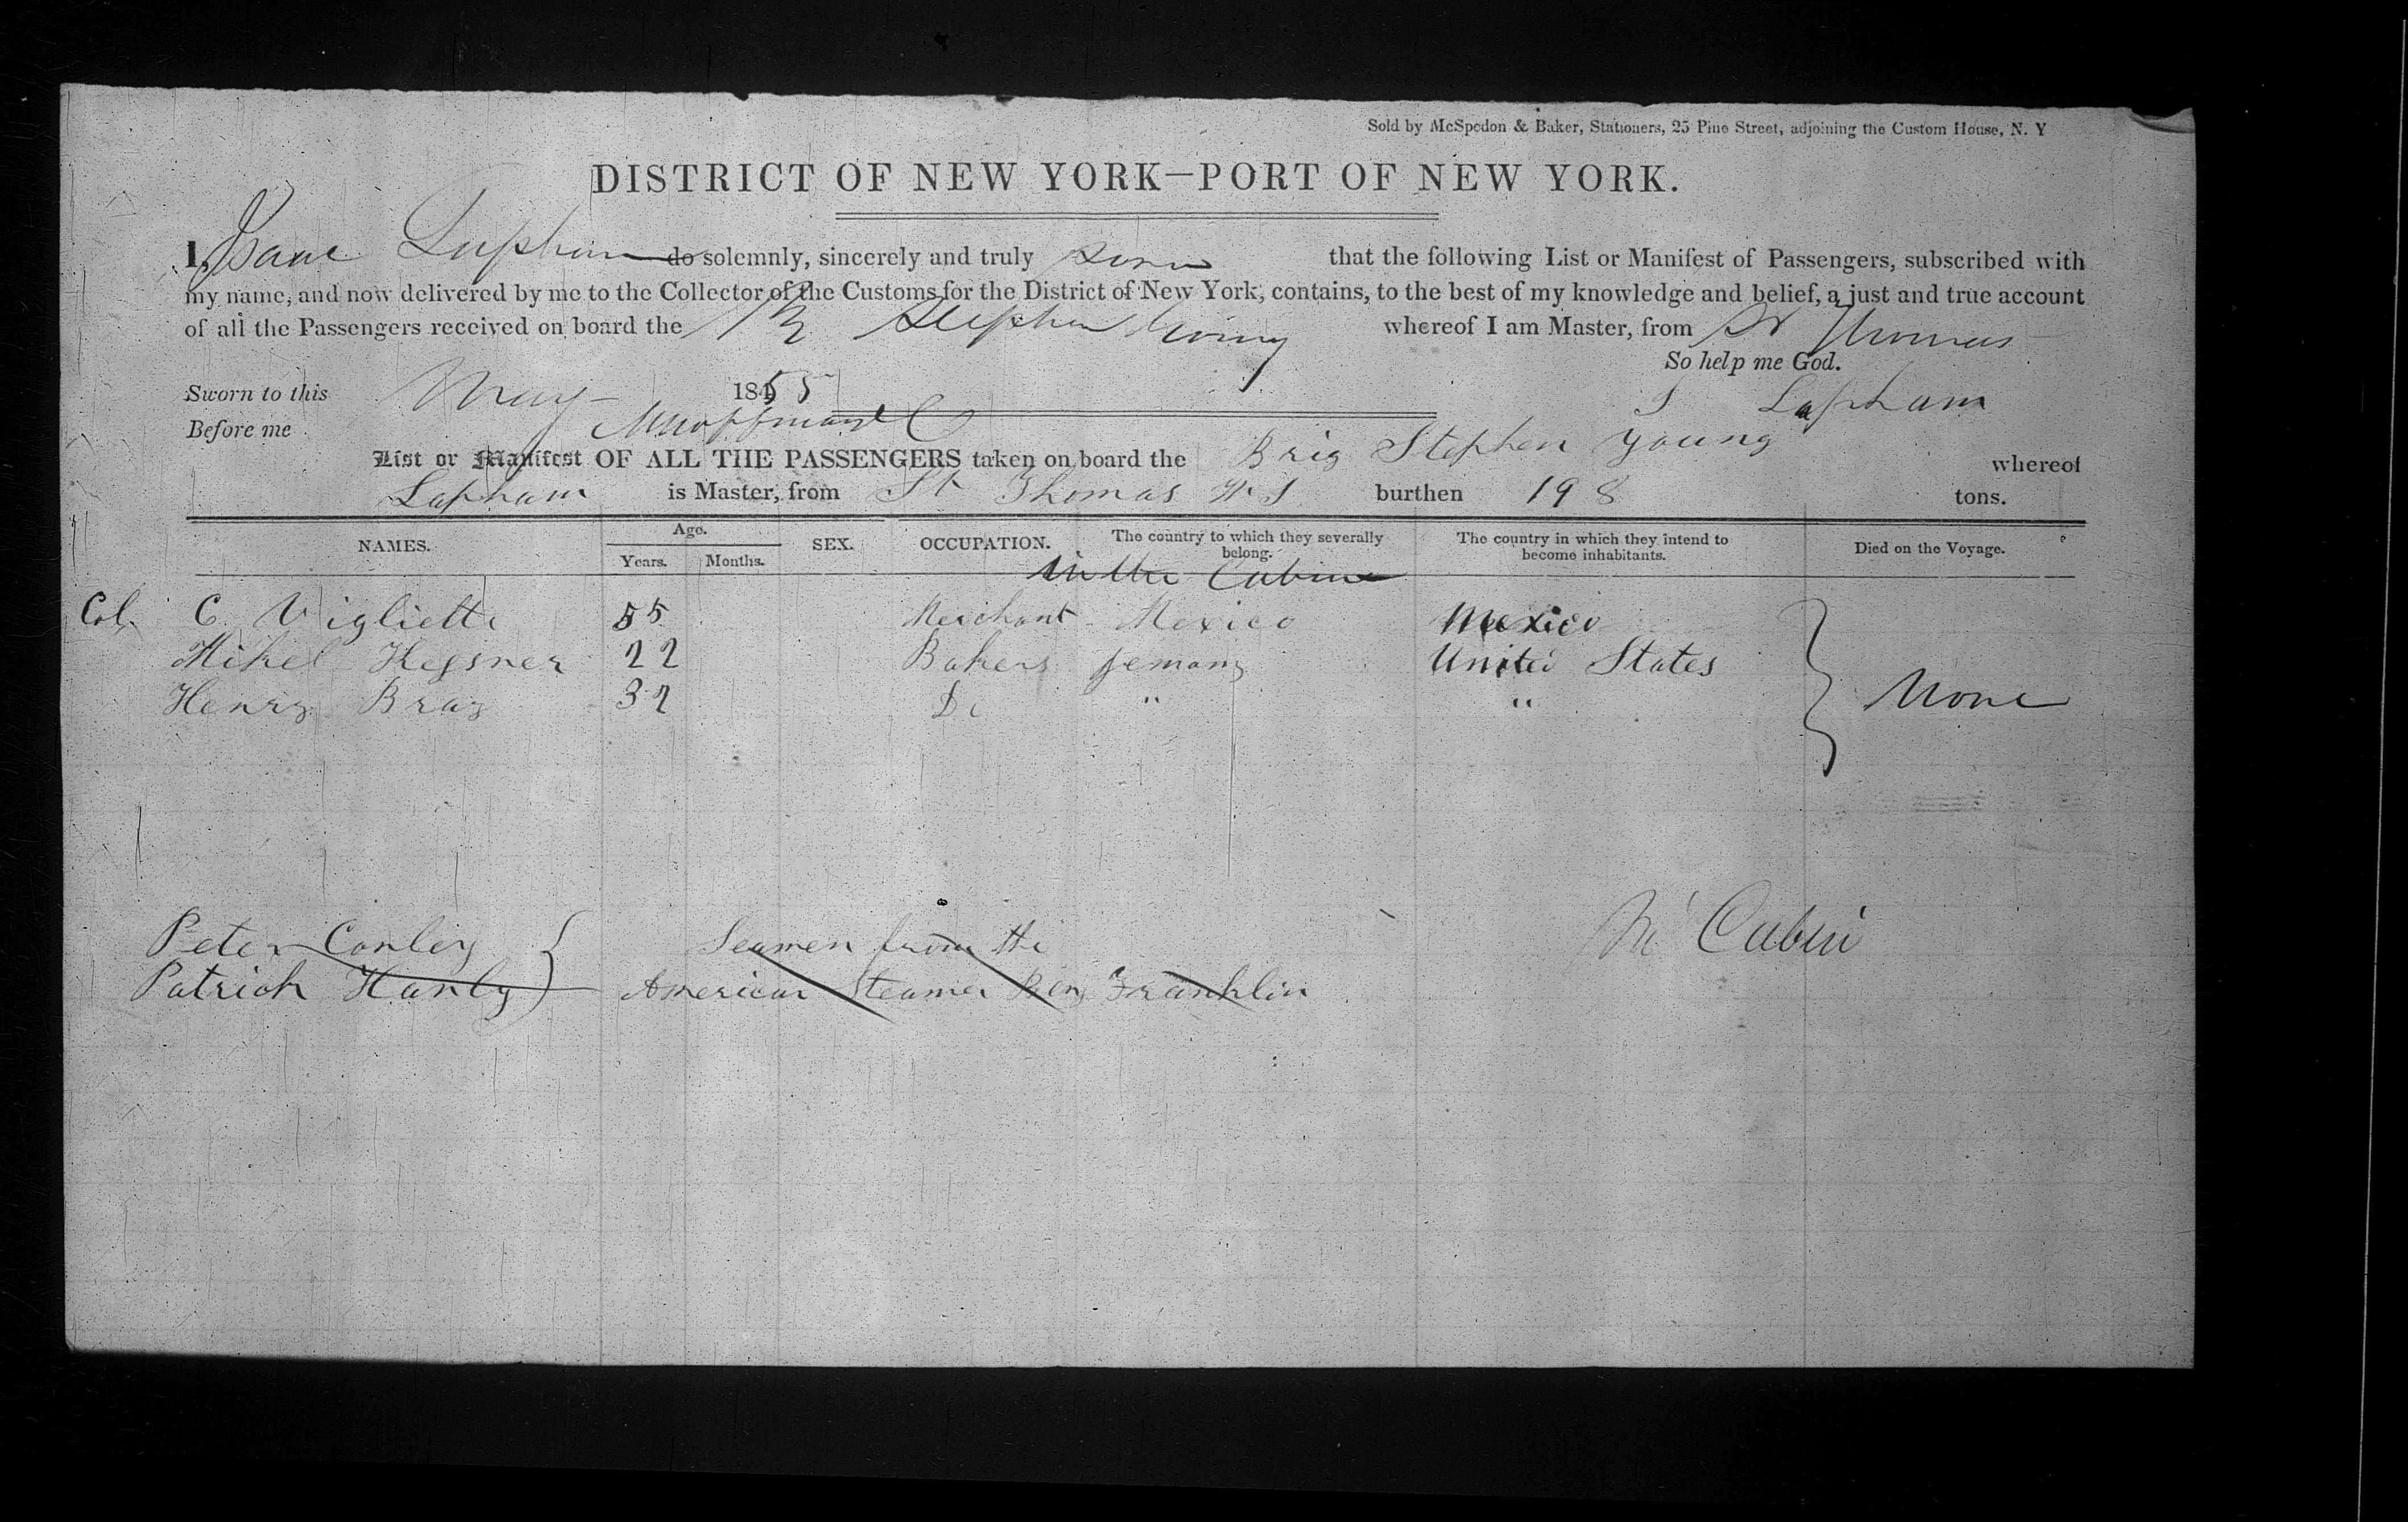 Sold by McSpedon & Baker, Stationers, 25 Pine Street, adjoining the Custom House, N. Y
DISTRICT OF NEW YORK—PORT OF NEW YORK.
I, Isaac Lapham do solemnly, sincerely and truly that the following List or Manifest of Passengers, subscribed with
my name, and now delivered by me to the Collector of the Customs for the District of New York, contains, to the best of my knowledge and belief, a just and true account
of all the Passengers received on board the Br Stephen Young whereof I am Master, from St Thomas
So help me God.
Sworn to this May 1855
I Lapham
Before me
List or Manifest OF ALL THE PASSENGERS taken on board the Brig Stephen Young whereof
Lapham is Master, from St Thomas W I burthen 198 tons.
NAMES. Age. Years. Months. SEX. OCCUPATION. The country to which they severally belong. The country in which they intend to become inhabitants. Died on the Voyage.
in the Cabin
Col. C. Viglietti 55 Merchant Mexico Mexico
Mikel Hessner 22 Bakers Jemany United States
Henry Bray 32 Do " " None
Peter Conley Seamen from the In Cabin
Patrick Hanly American Steamer Benj Franklin